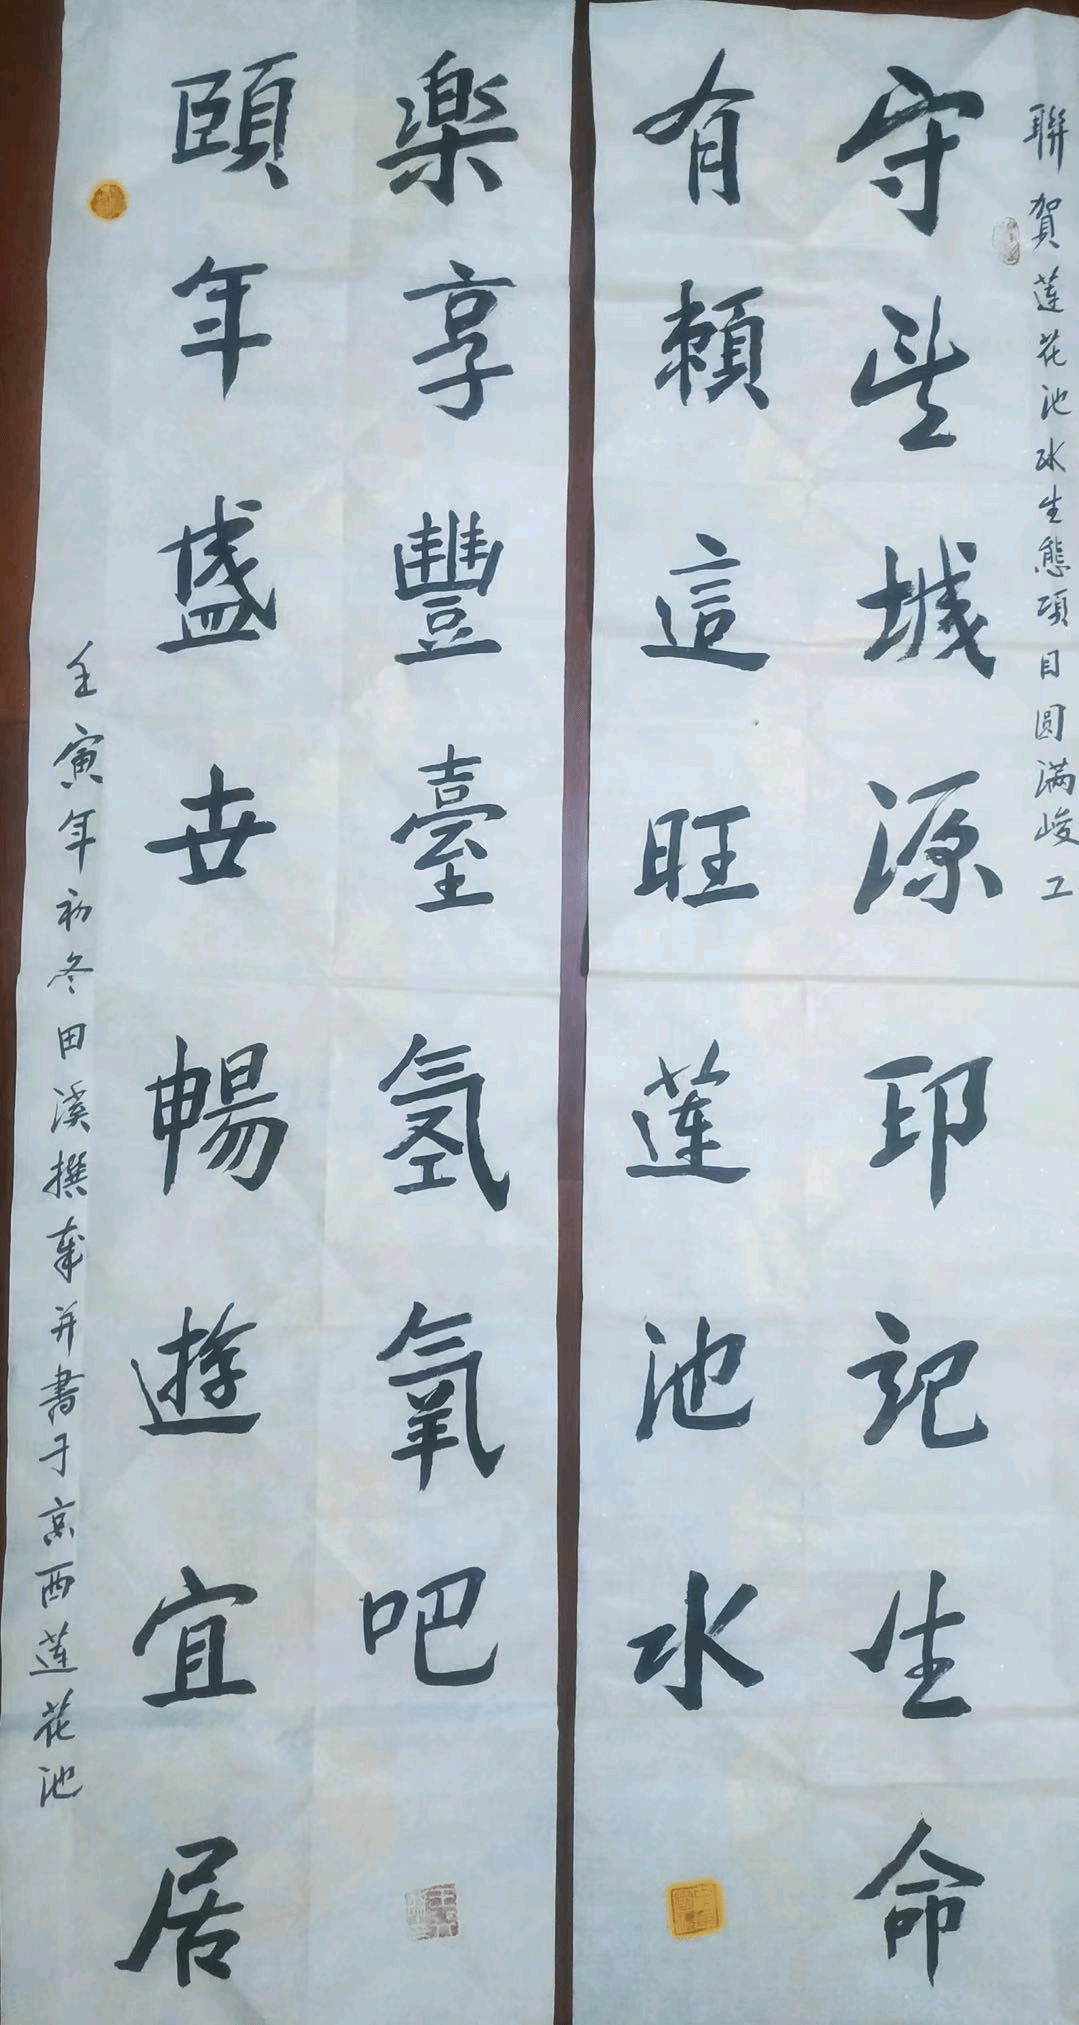 聯賀莲花池水生態項目圆满峻工
守望城源印記生命
有賴這旺莲池水
楽享豐臺氢氧吧
頤年盛世暢遊宜居
壬寅年初冬田溪撰奉并書于京西莲花池